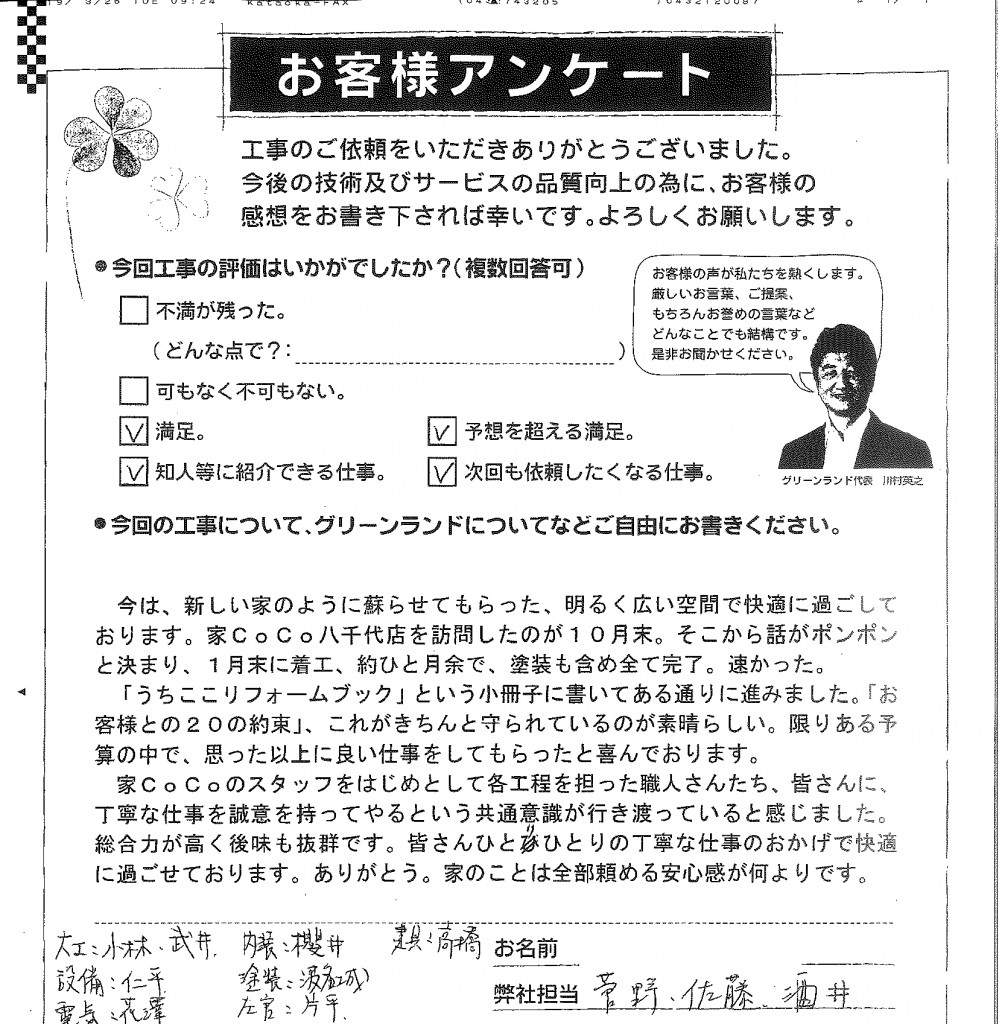 19/ 3/26 TUE 09:24 kataoka-FAX
お客様アンケート
工事のご依頼をいただきありがとうございました。
今後の技術及びサービスの品質向上の為に、お客様の
感想をお書き下されば幸いです。よろしくお願いします。
●今回工事の評価はいかがでしたか？（複数回答可）
不満が残った。
（どんな点で？：）
可もなく不可もない。
満足。
予想を超える満足。
知人等に紹介できる仕事。
次回も依頼したくなる仕事。
お客様の声が私たちを熱くします。
厳しいお言葉、ご提案、
もちろんお誉めの言葉など
どんなことでも結構です。
是非お聞かせください。
グリーンランド代表 川村英之
●今回の工事について、グリーンランドについてなどご自由にお書きください。
今は、新しい家のように蘇らせてもらった、明るく広い空間で快適に過ごして
おります。家ＣｏＣｏ八千代店を訪問したのが１０月末。そこから話がポンポン
と決まり、１月末に着工、約ひと月余で、塗装も含め全て完了。速かった。
「うちここリフォームブック」という小冊子に書いてある通りに進みました。「お
客様との２０の約束」、これがきちんと守られているのが素晴らしい。限りある予
算の中で、思った以上に良い仕事をしてもらったと喜んでおります。
家ＣｏＣｏのスタッフをはじめとして各工程を担った職人さんたち、皆さんに、
丁寧な仕事を誠意を持ってやるという共通意識が行き渡っていると感じました。
総合力が高く後味も抜群です。皆さんひとりひとりの丁寧な仕事のおかげで快適
に過ごせております。ありがとう。家のことは全部頼める安心感が何よりです。
大工：小林・武井 内装：櫻井 建具：高橋
設備：仁平 塗装：
電気：花澤 左官：片平
お名前
弊社担当 菅野・佐藤・酒井